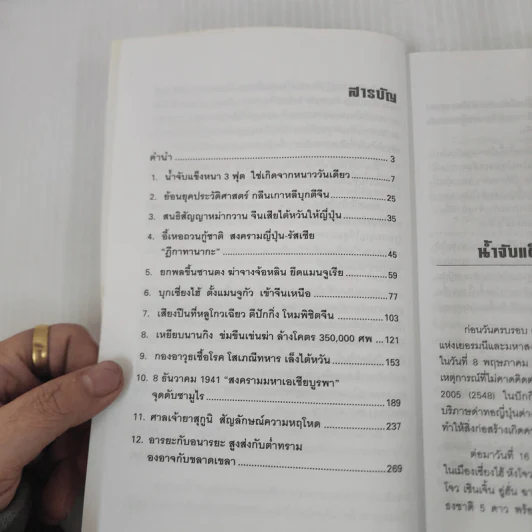 สารบัญ
คำนำ ........ 3
1. น้ำจับแข็งหนา 3 ฟุต ใช่เกิดจากหนาววันเดียว ........ 7
2. ย้อนยุคประวัติศาสตร์ กลืนเกาหลีบุกตีจีน ........ 25
3. สนธิสัญญาหม่ากวาน จีนเสียไต้หวันให้ญี่ปุ่น ........ 35
4. อี้เหอถวนกู้ชาติ สงครามญี่ปุ่น-รัสเซีย
"ฎีกาทานากะ" ........ 45
5. ยกพลขึ้นซานตง ฆ่าจางจ้อหลิน ยึดแมนจูเรีย ........ 59
6. บุกเซี่ยงไฮ้ ตั้งแมนจูกัว เข้าจีนเหนือ ........ 77
7. เสียงปืนที่หลูโกวเฉียว ตีปักกิ่ง โหมพิชิตจีน ........ 103
8. เหยียบนานกิง ข่มขืนเข่นฆ่า ล้างโคตร 350,000 ศพ ... 121
9. กองอาวุธเชื้อโรค โสเภณีทหาร เล็งไต้หวัน ........ 153
10. 8 ธันวาคม 1941 "สงครามมหาเอเชียบูรพา"
จุดดับซามูไร ........ 189
11. ศาลเจ้ายาสุกูนิ สัญลักษณ์ความหฤโหด ........ 237
12. อารยะกับอนารยะ สูงส่งกับต่ำทราม
องอาจกับขลาดเขลา ........ 269
น้ำจับแ
ก่อนวันครบรอบ
แห่งเยอรมนีและมหาส
ในวันที่ 8 พฤษภาคม
เหตุการณ์ที่ไม่คาดคิด
2005 (2548) ในปักกิ่
บริภาษด่าทอญี่ปุ่น
ทำให้สิ่งก่อสร้างเกิด
ต่อมาวันที่ 16
ในเมืองเซี่ยงไฮ้ หังโจว
โจว เซินเจิ้น อู่ฮั่น
ธงชาติ 5 ดาว พร้อ